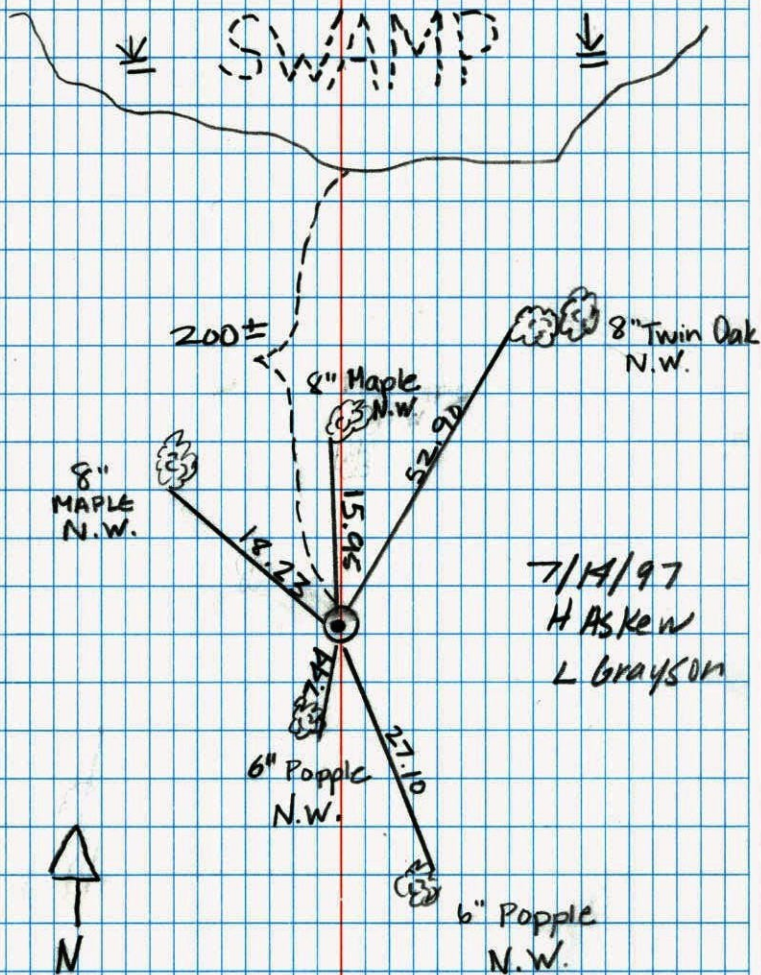 SWAMP
200±
8" Twin Oak
N.W.
8" Maple
N.W.
52.90
8"
MAPLE
N.W.
15.95
18.23
7/14/97
H Askew
L Grayson
27.10
6" Popple
N.W.
6" Popple
N.W.
N